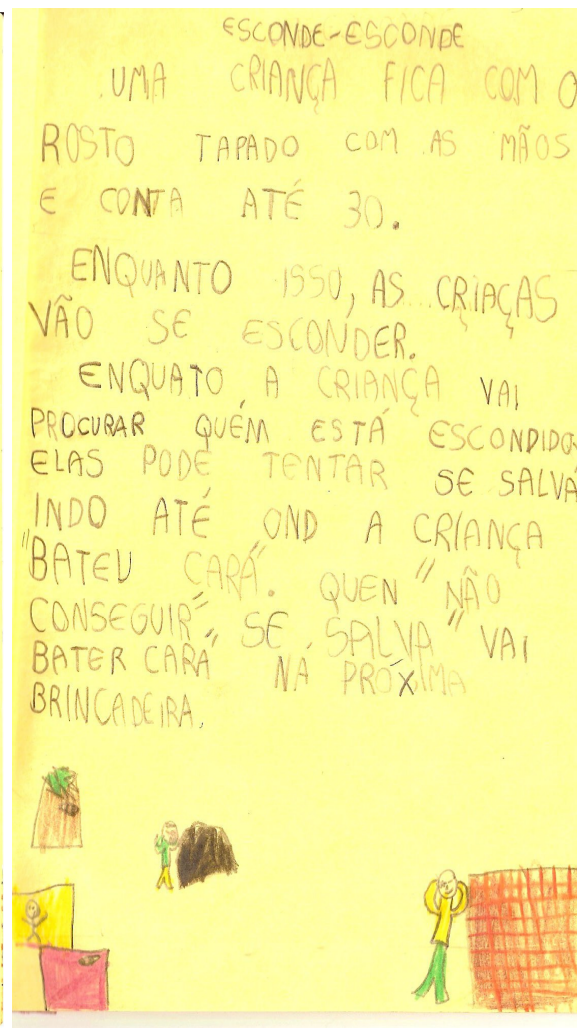 ESCONDE-ESCONDE
UMA CRIANÇA FICA COM O
ROSTO TAPADO COM AS MÃOS
E CONTA ATÉ 30.
ENQUANTO ISSO, AS CRIAÇAS
VÃO SE ESCONDER.
ENQUATO A CRIANÇA VAI
PROCURAR QUÉM ESTÁ ESCONDIDO
ELAS PODE TENTAR SE SALVÁ
INDO ATÉ OND A CRIANÇA
"BATEU CARÁ". QUEN "NÃO
CONSEGUIR" SE SALVA" VAI
BATER CARÁ NÁ PRÓXIMA
BRINCADEIRA.